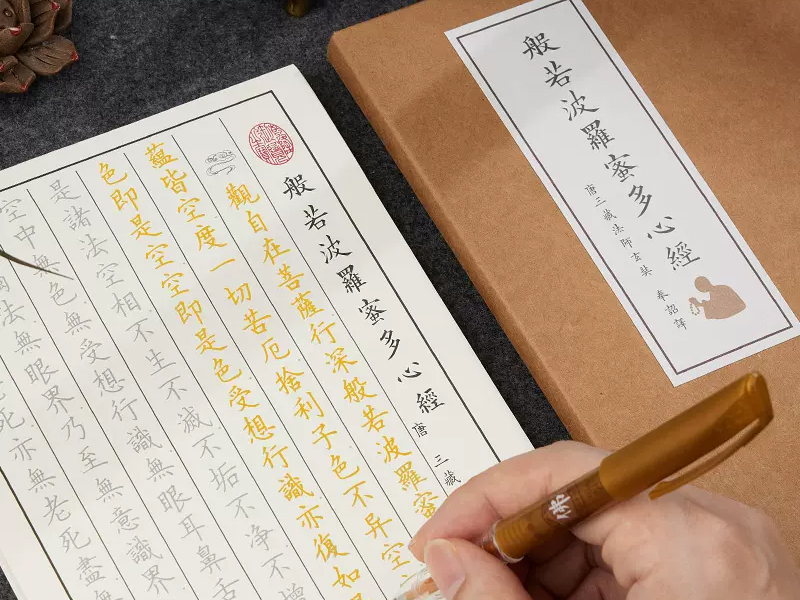 般若波羅蜜多心經
唐三藏法師玄奘 奉詔譯
般若波羅蜜多心經 唐 三藏
觀自在菩薩行深般若波羅蜜
蘊皆空度一切苦厄捨利子色不異空
色即是空空即是色受想行識亦復如是
是諸法空相不生不滅不垢不淨不增
空中無色無受想行識無眼耳鼻舌
法無眼界乃至無意識界
死亦無老死盡無
佛